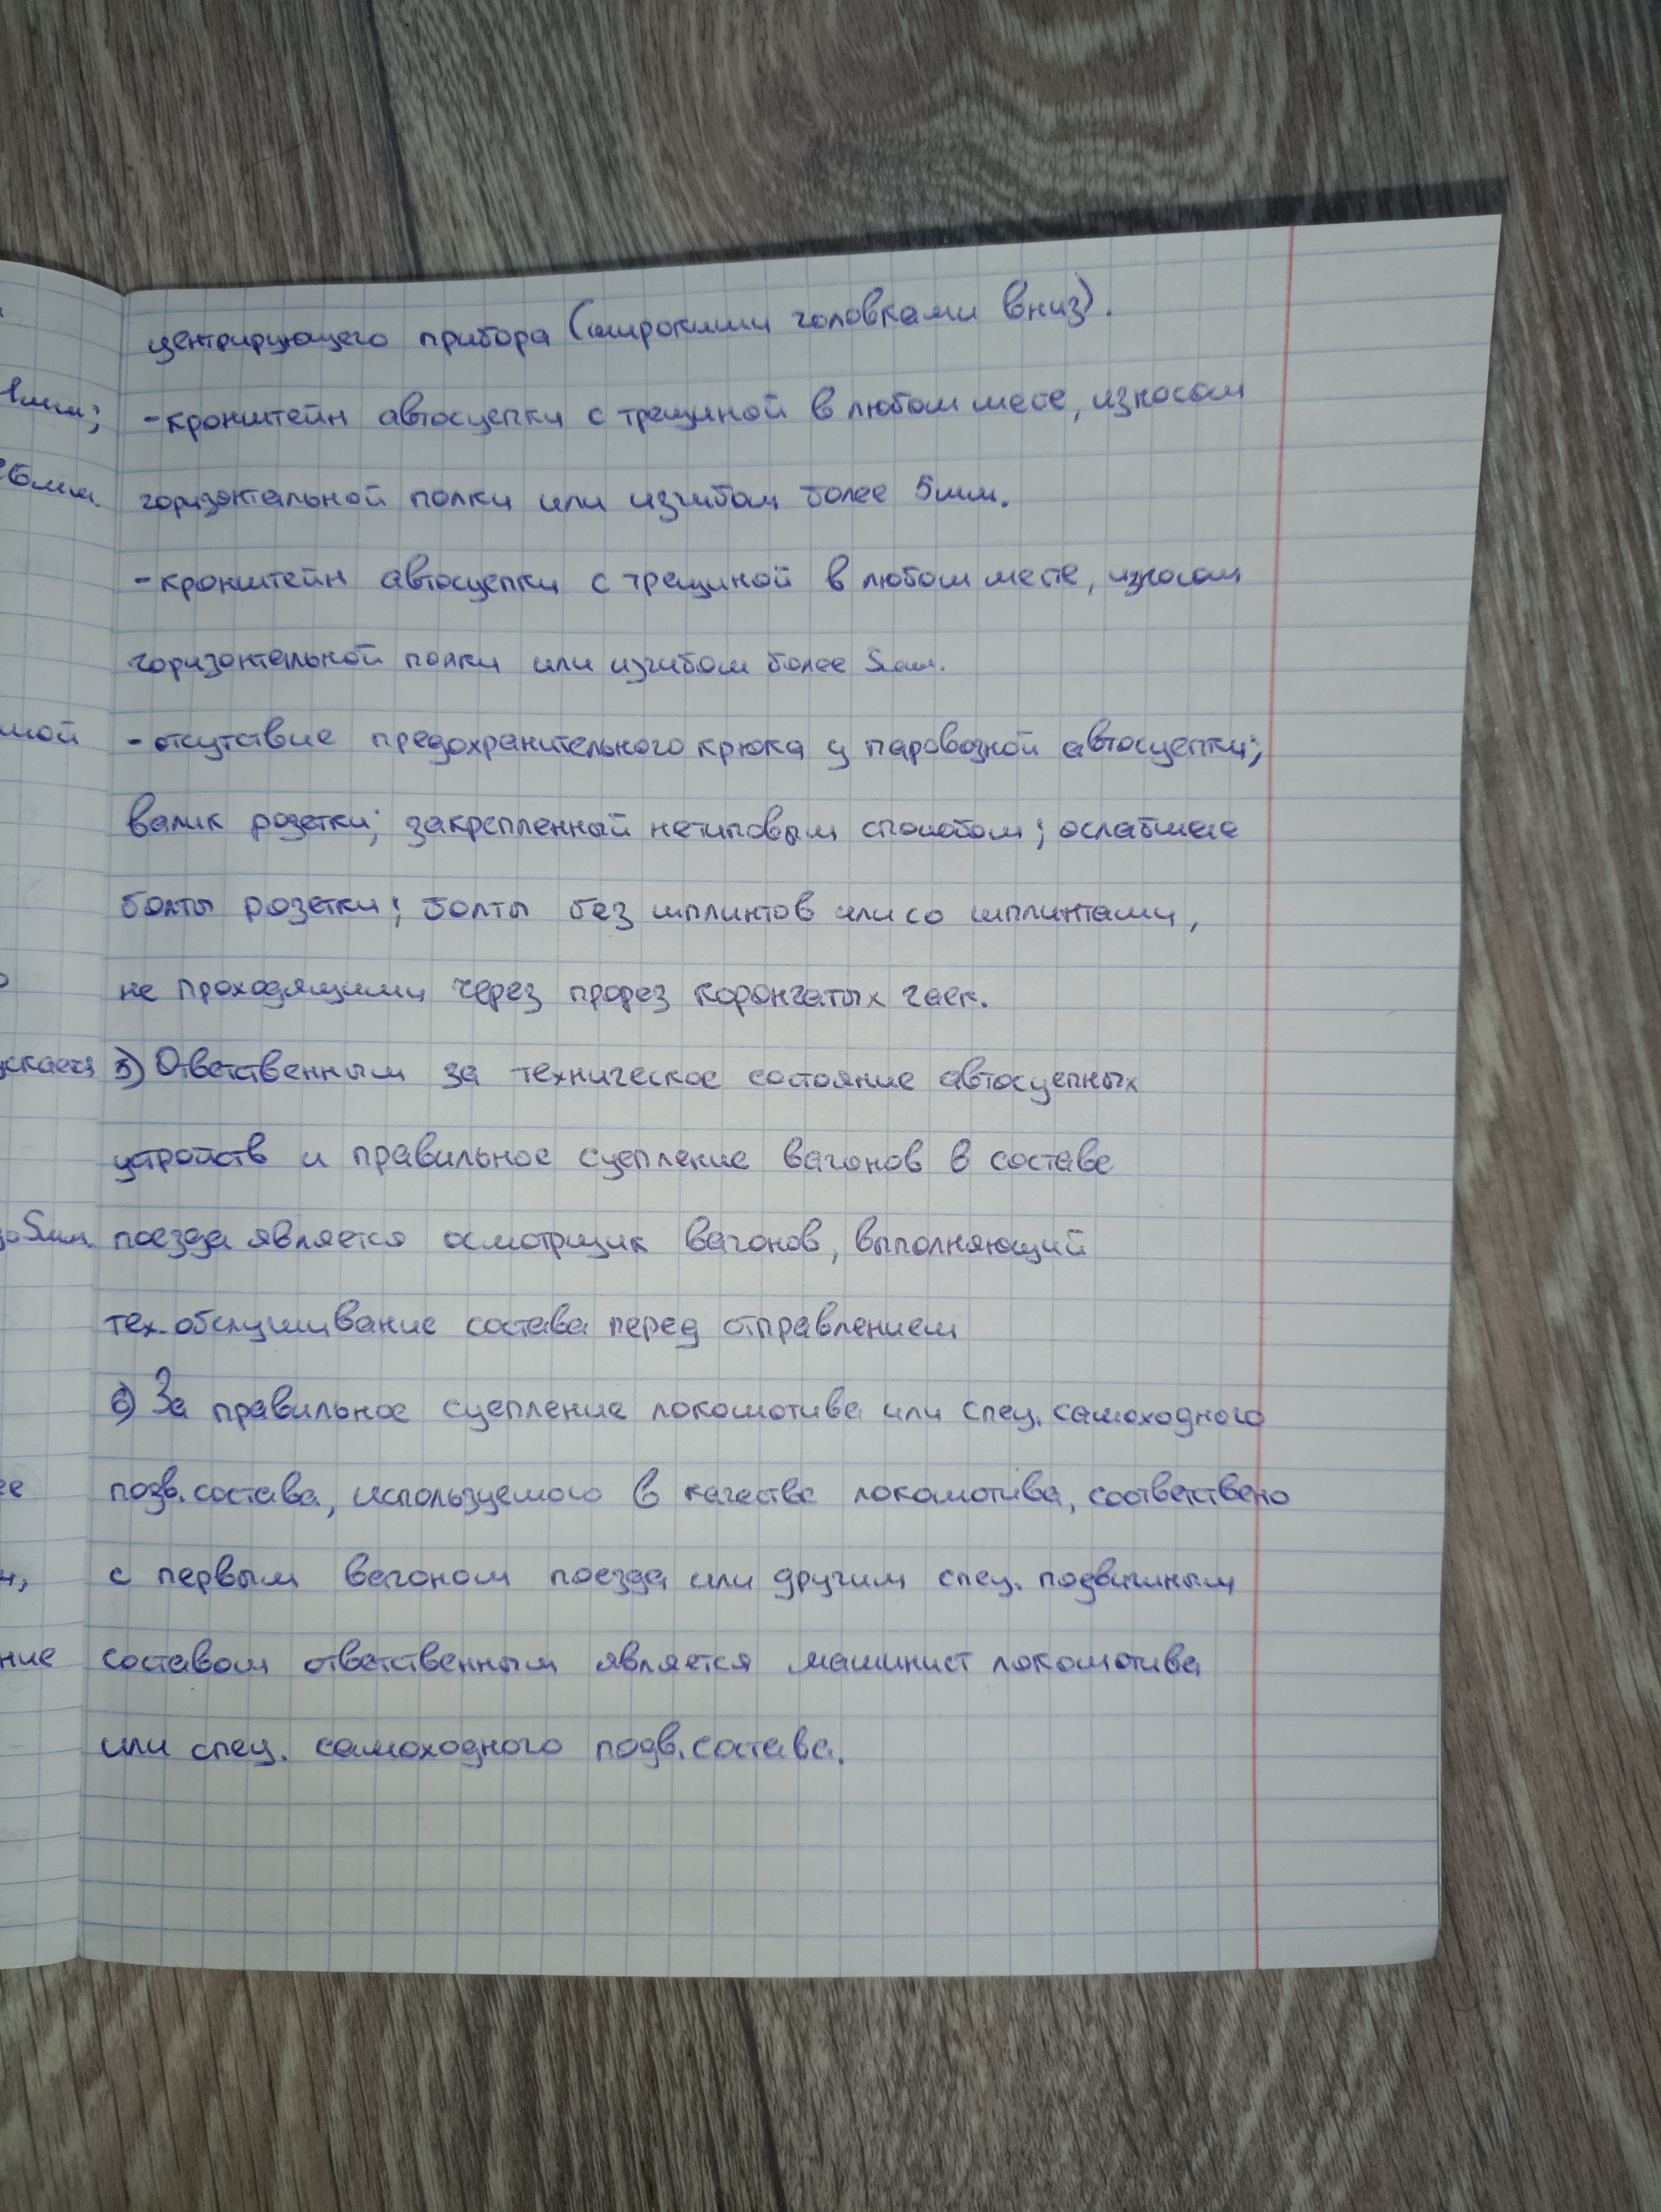 центрирующего прибора (широкими головками вниз).
1мм; -кронштейн автосцепки с трещиной в любом месте, износом
6мм. горизонтальной полки или изгибом более 5мм.
-кронштейн автосцепки с трещиной в любом месте, износом
горизонтальной полки или изгибом более 5мм.
мой - отсутствие предохранительного крюка у паровозной автосцепки;
валик розетки; закрепленный нетиповым способом; ослабшие
болты розетки; болты без шплинтов или со шплинтами,
не проходящими через прорез корончатых гаек.
ускается 5) Ответственным за техническое состояние автосцепных
устройств и правильное сцепление вагонов в составе
до 5мм. поезда является осмотрщик вагонов, выполняющий
тех. обслуживание состава перед отправлением
6) За правильное сцепление локомотива или спец. самоходного
ее позв. состава, используемого в качестве локомотива, соответствено
и, с первым вагоном поезда или другим спец. подвижным
ние составом ответственным является машинист локомотива
или спец. самоходного подв. состава.